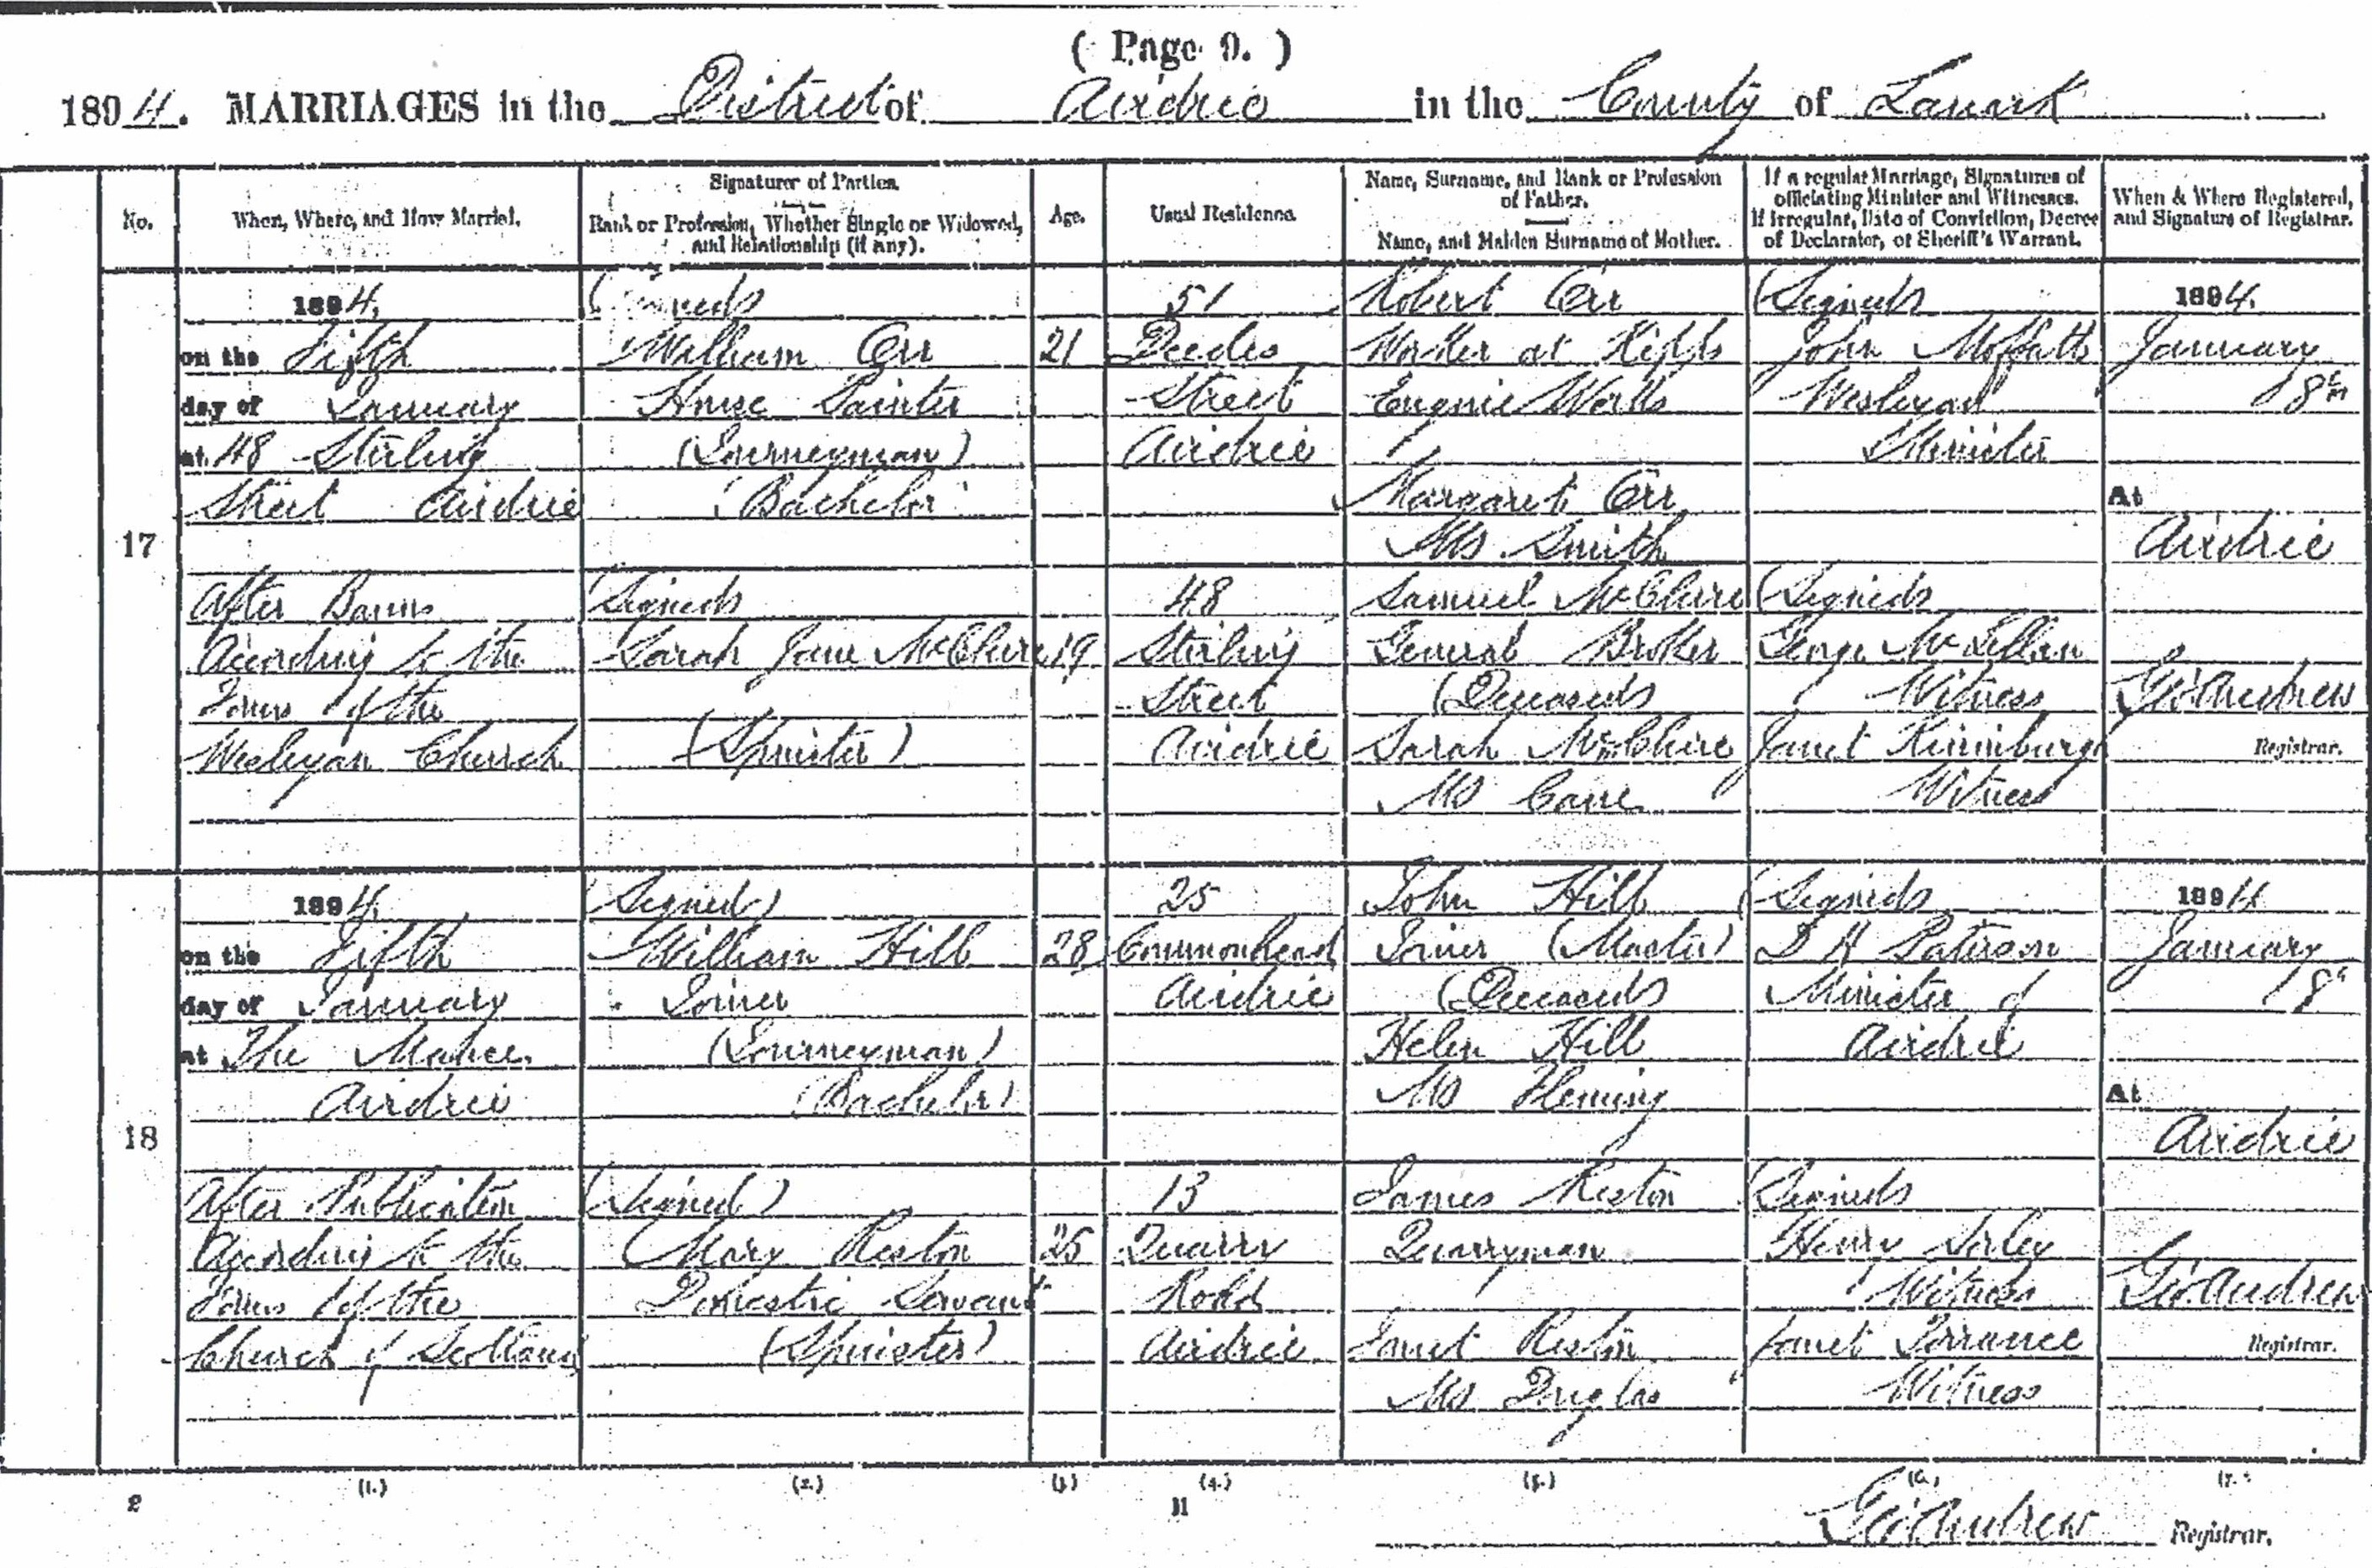 ( Page 9. )
1894. MARRIAGES in the District of Airdrie in the County of Lanark
No.
When, Where, and How Married.
Signatures of Parties.
Rank or Profession, Whether Single or Widowed,
and Relationship (if any).
Age.
Usual Residence.
Name, Surname, and Rank or Profession
of Father.
Name, and Maiden Surname of Mother.
If a regular Marriage, Signatures of
officiating Minister and Witnesses.
If irregular, Date of Conviction, Decree
of Declarator, or Sheriff's Warrant.
When & Where Registered,
and Signature of Registrar.
17
1894.
on the Fifth
day of January
at 48 Stirling
Street Airdrie
After Banns
According to the
Forms of the
Wesleyan Church
(Signed)
William Orr
House Painter
(Journeyman)
(Bachelor)
(Signed)
Sarah Jane McClure
(Spinster)
21
19
51
Deedes
Street
Airdrie
48
Stirling
Street
Airdrie
Robert Orr
Worker at Kipps
Engine Works
Margaret Orr
MS Smith
Samuel McClure
General Broker
(Deceased)
Sarah McClure
MS
(Signed)
John Moffatt
Wesleyan
Minister
(Signed)
George McLellan
Witness
Janet Kinniburgh
Witness
1894.
January
8th
At
Airdrie
Geo. Andrew
Registrar.
18
1894.
on the Fifth
day of January
at The Manse
Airdrie
After Publication
According to the
Forms of the
Church of Scotland
(Signed)
William Hill
Joiner
(Journeyman)
(Bachelor)
(Signed)
Mary Reston
Domestic Servant
(Spinster)
28
25
25
Commonhead
Airdrie
13
Quarry
Road
Airdrie
John Hill
Joiner (Master)
(Deceased)
Helen Hill
MS Fleming
James Reston
Quarryman
Janet Reston
MS Douglas
(Signed)
Paterson
Minister of
Airdrie
(Signed)
Henry
Witness
Janet Torrance
Witness
1894
January
8th
At
Airdrie
Geo. Andrew
Registrar.
(1.)
(2.)
(3.)
(4.)
(5.)
(6.)
(7.)
2
Geo. Andrew Registrar.